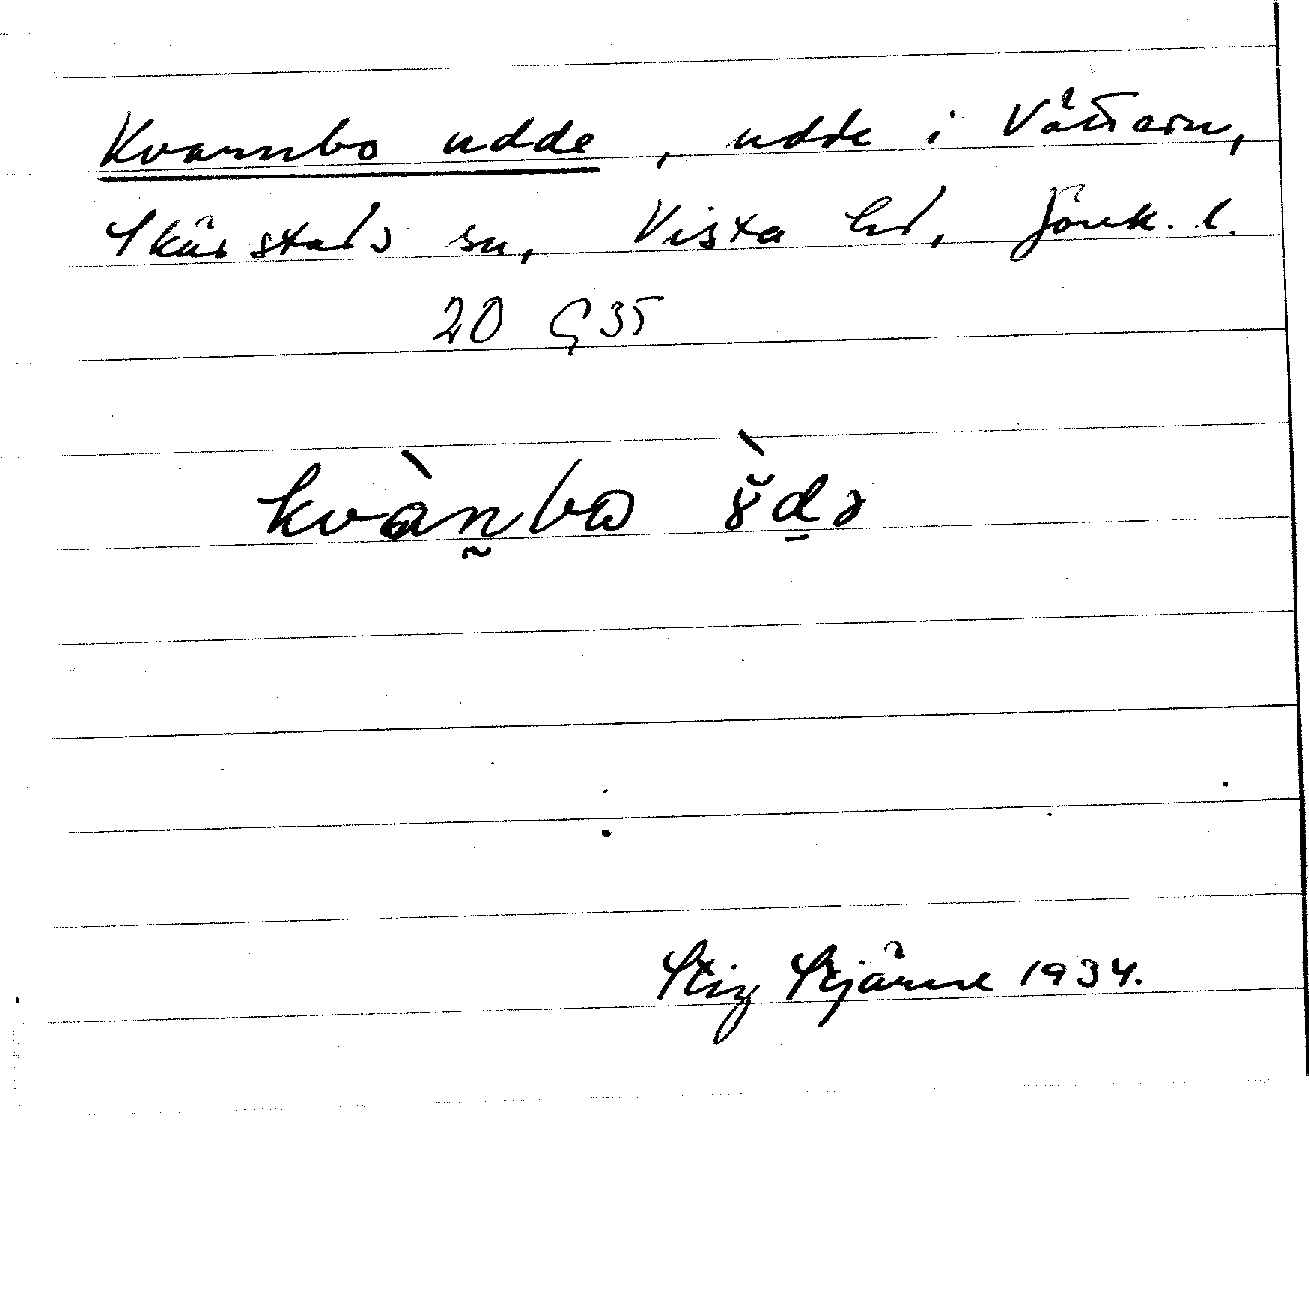 Kvarnbo udde, udde i Vättern,
Skärstads sn, Vista hd, Jönk. l.
20 Ç 35
kvàn̰bɷ ɤ̆̀d̠ə
Stig Stjärne 1934.